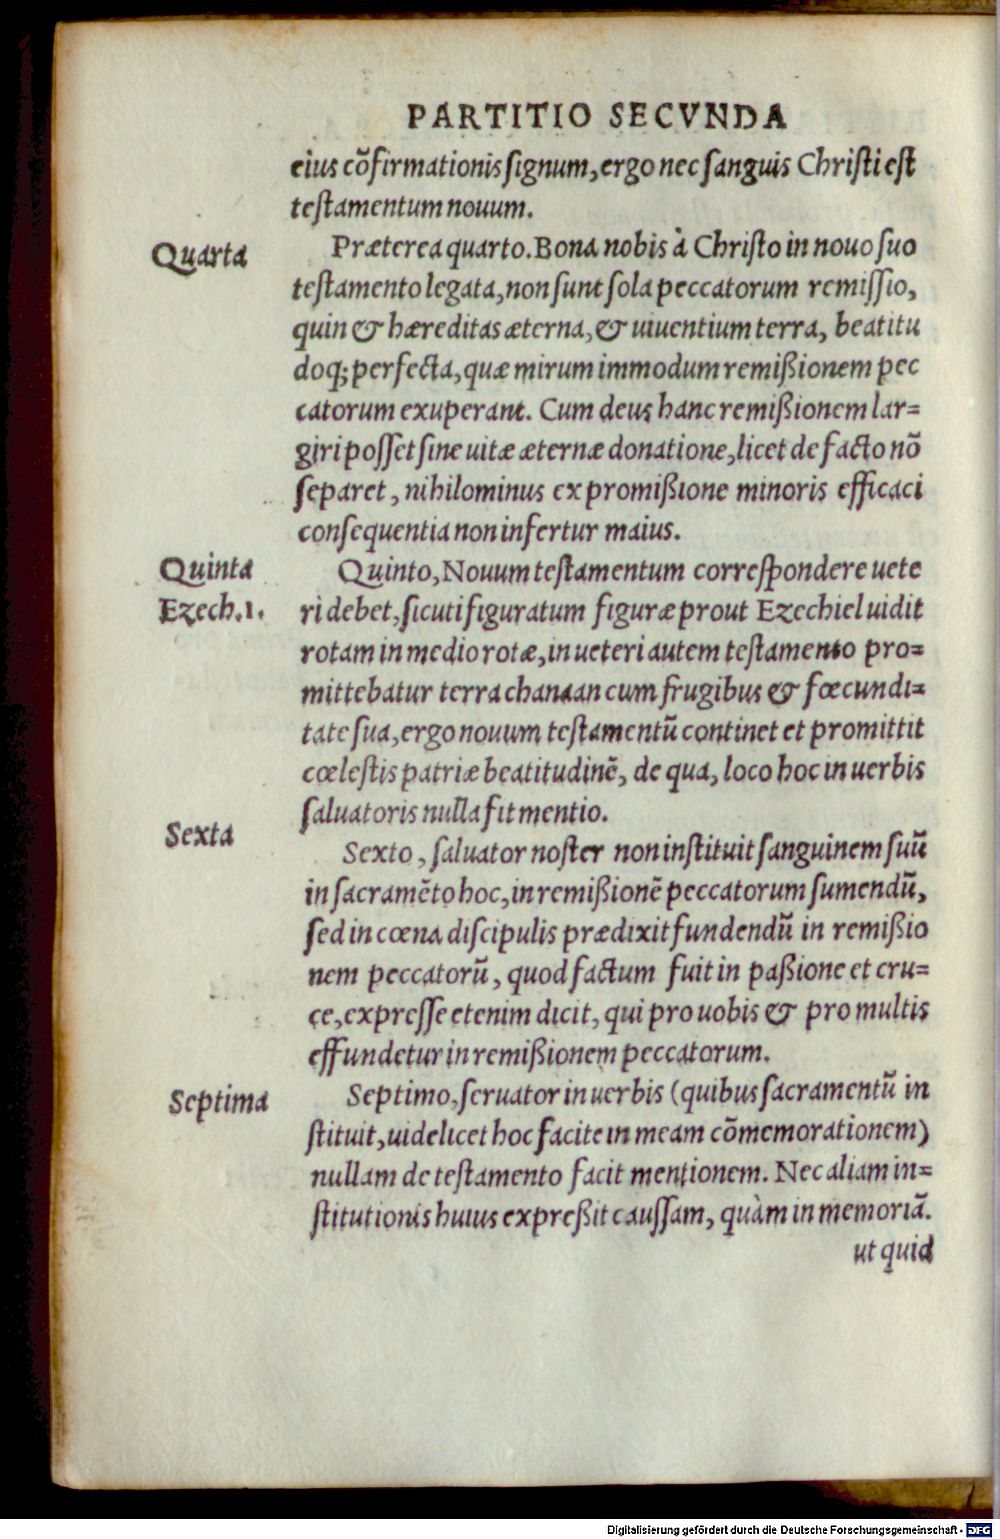 PARTITIO SECVNDA
eius cõfirmationis ſignum, ergo nec ſanguis Chriſti eſt
teſtamentum nouum.
Quarta
Præterea quarto. Bona nobis à Chriſto in nouo ſuo
teſtamento legata, non ſunt ſola peccatorum remiſſio,
quin & hæreditas æterna, & uiuentium terra, beatitu
doq; perfecta, quæ mirum immodum remißionem pec
catorum exuperant. Cum deus hanc remißionem lar=
giri poſſet ſine uitæ æternæ donatione, licet de facto nõ
ſeparet, nihilominus ex promißione minoris efficaci
conſequentia non infertur maius.
Quinta
Quinto, Nouum teſtamentum correſpondere uete
Ezech.1.
ri debet, ſicuti figuratum figuræ prout Ezechiel uidit
rotam in medio rotæ, in ueteri autem teſtamento pro=
mittebatur terra chanaan cum frugibus & fœcundi=
tate ſua, ergo nouum teſtamentũ continet et promittit
cœleſtis patriæ beatitudinẽ, de qua, loco hoc in uerbis
ſaluatoris nulla fit mentio.
Sexta
Sexto, ſaluator noſter non inſtituit ſanguinem ſuũ
in ſacramẽto hoc, in remißionẽ peccatorum ſumendũ,
ſed in cœna diſcipulis prædixit fundendũ in remißio
nem peccatorũ, quod factum fuit in paßione et cru=
ce, expreſſe etenim dicit, qui pro uobis & pro multis
effundetur in remißionem peccatorum.
Septima
Septimo, ſeruator in uerbis (quibus ſacramentũ in
ſtituit, uidelicet hoc facite in meam cõmemorationem)
nullam de teſtamento facit mentionem. Nec aliam in=
ſtitutionis huius expreßit cauſſam, quàm in memoriã.
ut quid
Digitalisierung gefördert durch die Deutsche Forschungsgemeinschaft - DFG